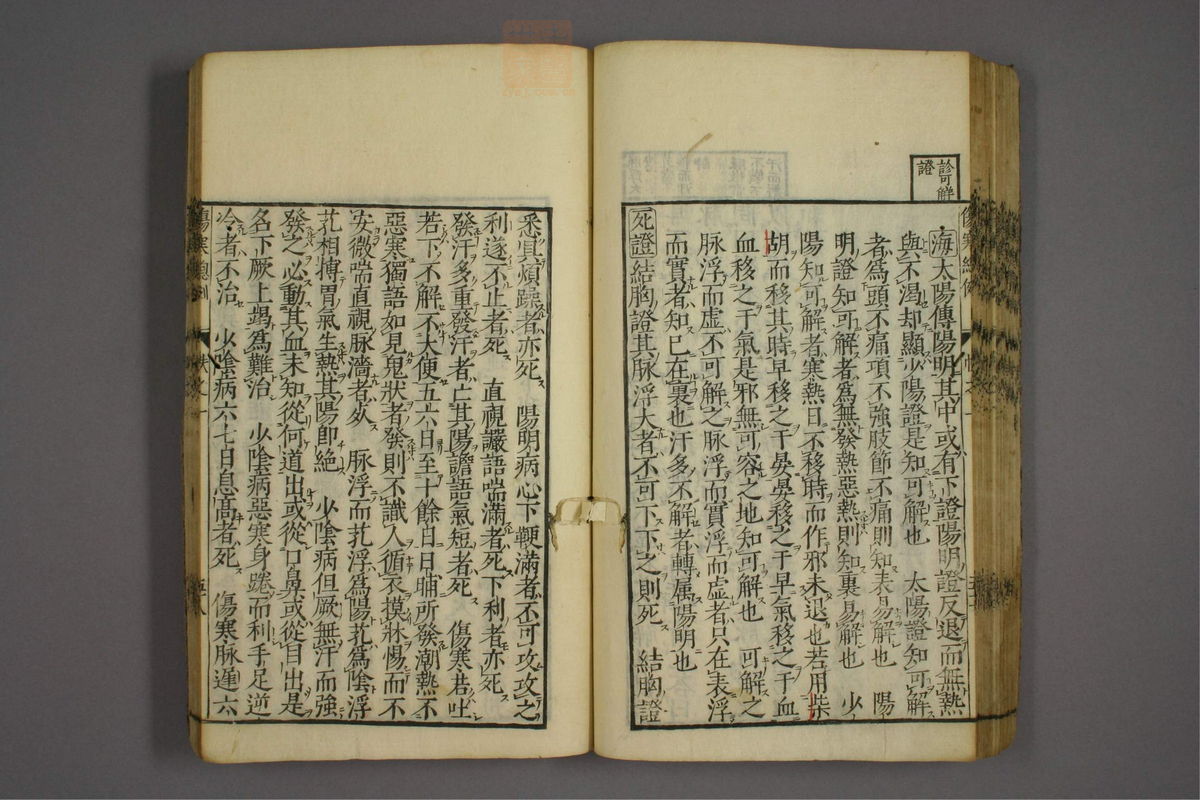 診可解
證
海太陽傳陽明其中或有下證陽明證反退而無熱
與不渴却顯少陽證是知可解也　太陽證知可解
者為頭不痛項不強肢節不痛則知表易解也　陽
明證知可解者為無發熱惡熱則知裏易解也　少
陽知可解者寒熱日不移時而作邪未退也若用柴
胡而移其時早移之于晏晏移之于早氣移之于血
血移之于氣是邪無可容之地知可解也　可解之
脉浮而虛不可解之脉浮而實浮而虛者只在表浮
而實者知已在裏也汗多不解者轉属陽明也
死證結胸證其脉浮大者不可下下之則死　結胸證
悉具煩躁者亦死　陽明病心下鞕滿者不可攻攻之
利遂不止者死　直視讝語喘滿者死下利者亦死
發汗多重發汗者亡其陽譫語氣短者死　傷寒若吐
若下不解不大便五六日至十餘日日晡所發潮熱不
惡寒獨語如見鬼狀者發則不識人循衣摸牀惕而不
安微喘直視脉濇者死　脉浮而芤浮為陽芤為陰浮
芤相搏胃氣生熱其陽即絶　少陰病但厥無汗而強
發之必動其血未知從何道出或從口鼻或從目出是
名下厥上竭為難治　少陰病惡寒身踡而利手足逆
冷者不治　少陰病六七日息高者死　傷寒脉遲六